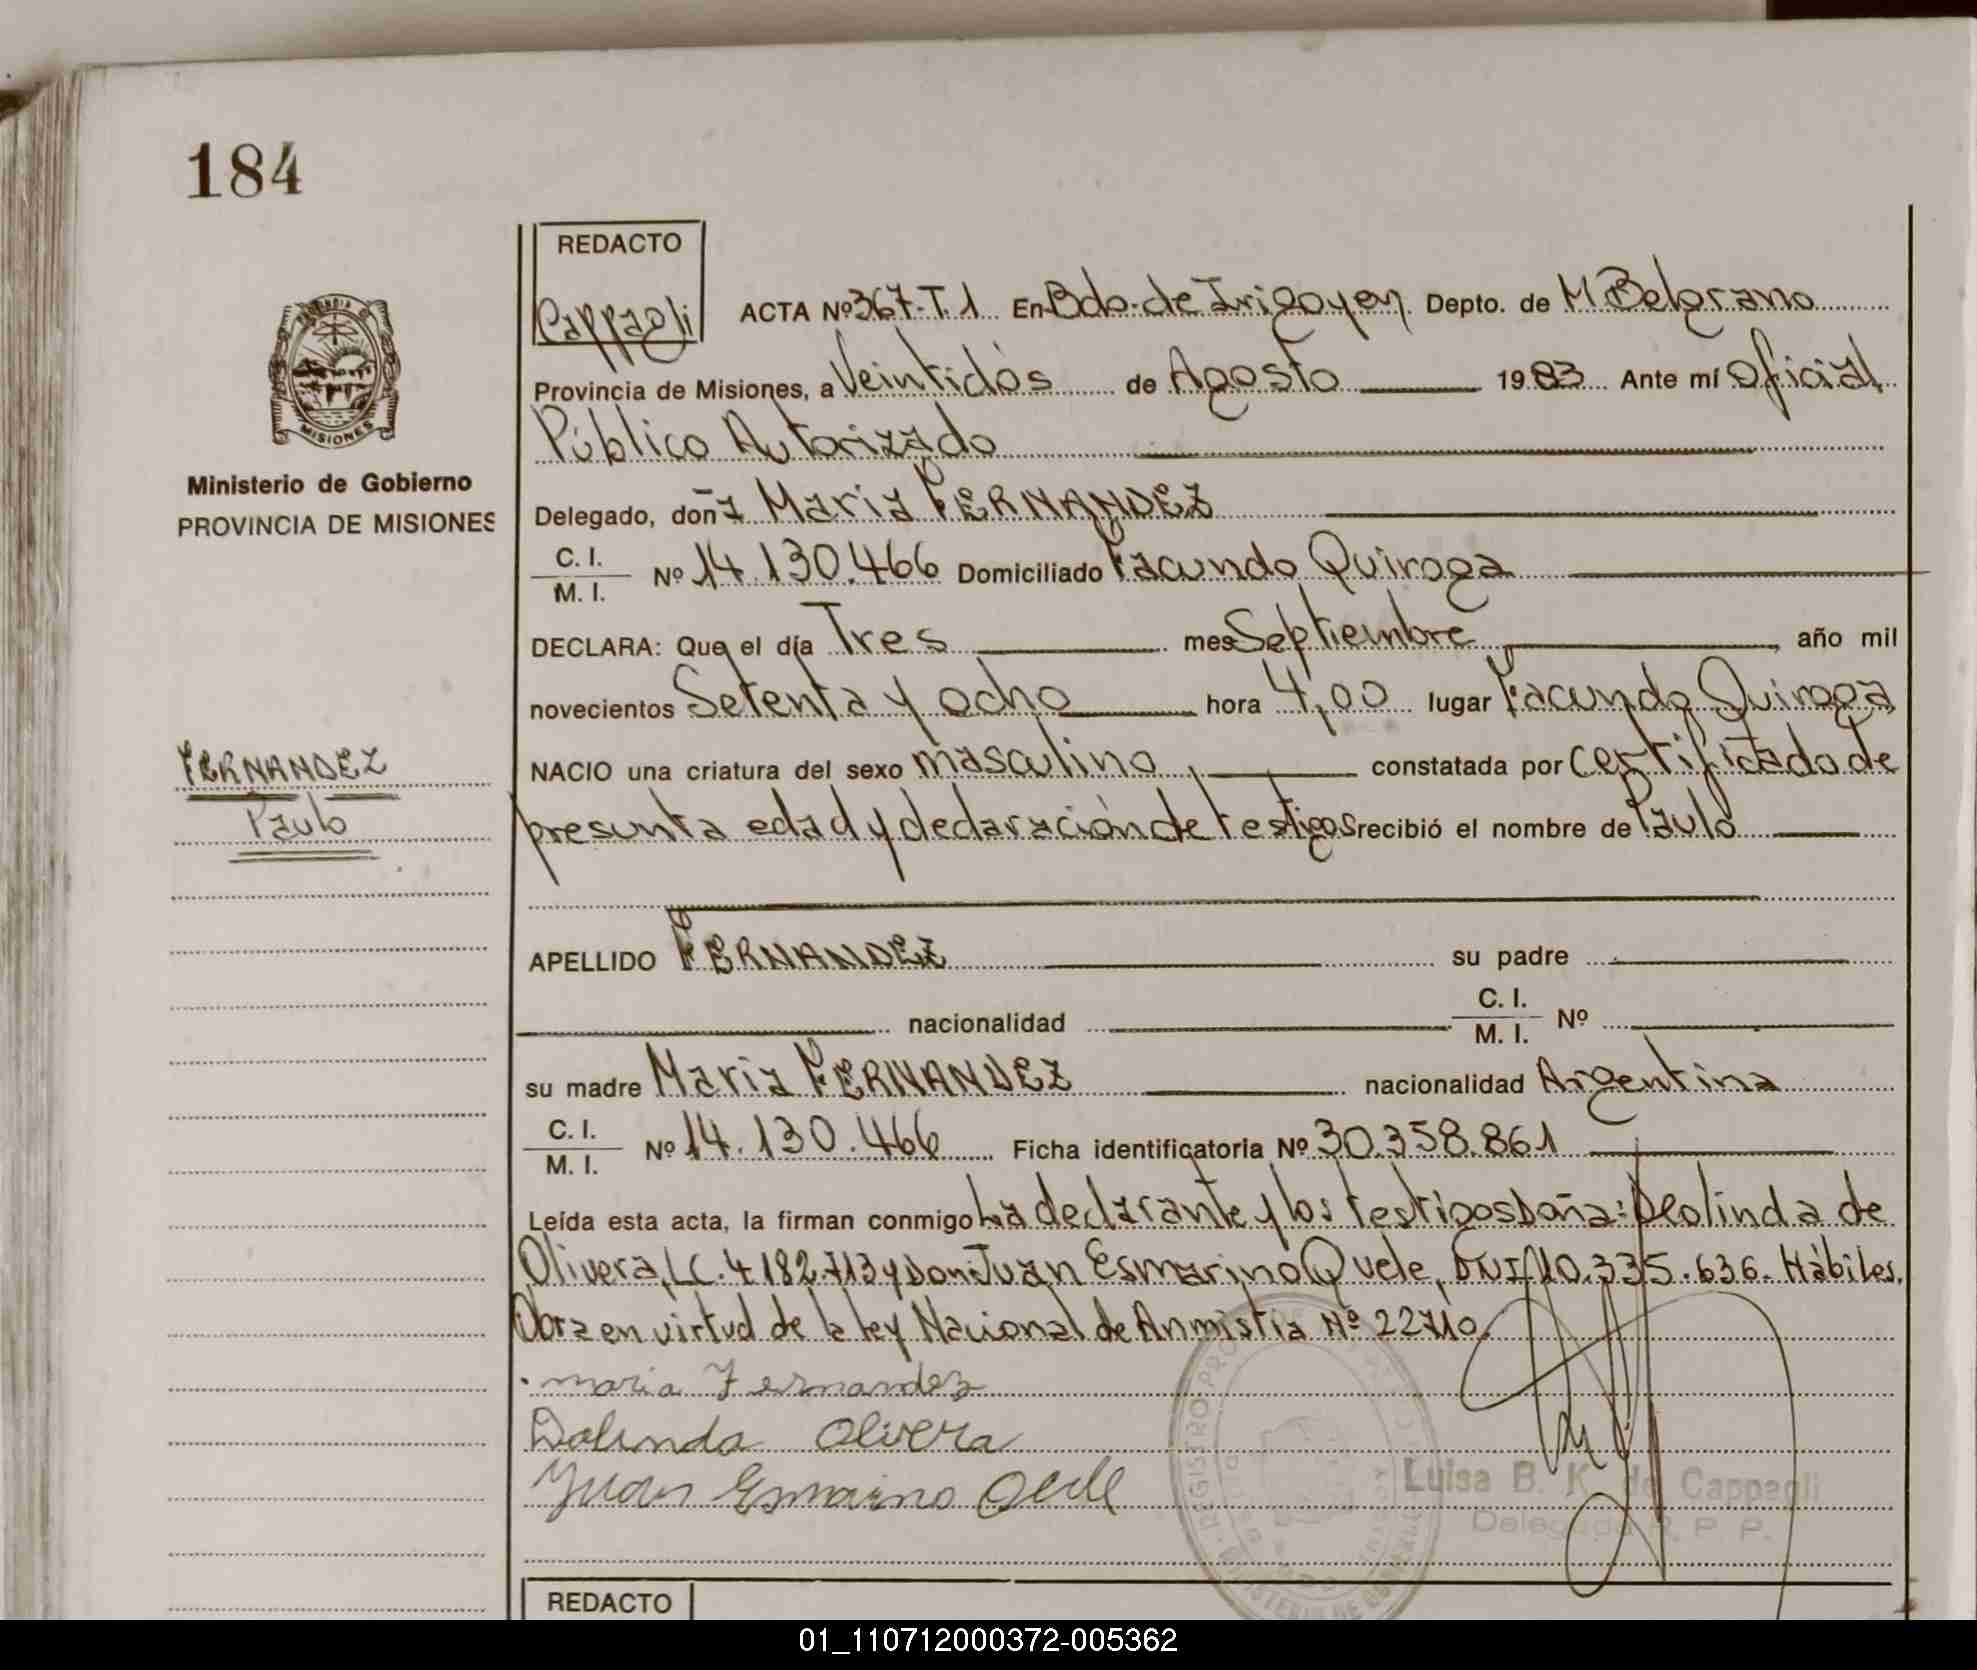 184
REDACTO
Cappagli
ACTA Nº 367-T.1 En Bdo. de Irigoyen Depto. de M Belgrano
Provincia de Misiones, a Veintidós de Agosto 1983 Ante mí Oficial
Público Autorizado
MISIONES
Ministerio de Gobierno
PROVINCIA DE MISIONES
Delegado, doña Maria FERNANDEZ
C. I.
M. I.
Nº 14.130.466 Domiciliado Facundo Quiroga
DECLARA: Que el día Tres mes Septiembre, año mil
novecientos Setenta y ocho hora 4,00 lugar Facundo Quiroga
NACIO una criatura del sexo masculino, constatada por certificado de
presunta edad y declaración de testigos recibió el nombre de Paulo
FERNANDEZ
Paulo
APELLIDO FERNANDEZ su padre
nacionalidad
C. I.
M. I.
Nº
su madre Maria FERNANDEZ nacionalidad Argentina
C. I.
M. I.
Nº 14.130.466 Ficha identificatoria Nº 30.358.861
Leída esta acta, la firman conmigo La declarante y los testigos Doña: Deolinda de
Olivera, LC. 4182.713 y Don Juan Esmarino Quele, DNI 10.335.636. Hábiles.
Obra en virtud de la ley Nacional de Anmistia Nº 22710.
maria Fernandez
Dolinda Olivera
Juan Esmarino
Luisa B. K. de Cappagli
Delegada R. P. P.
REDACTO
01_110712000372-005362